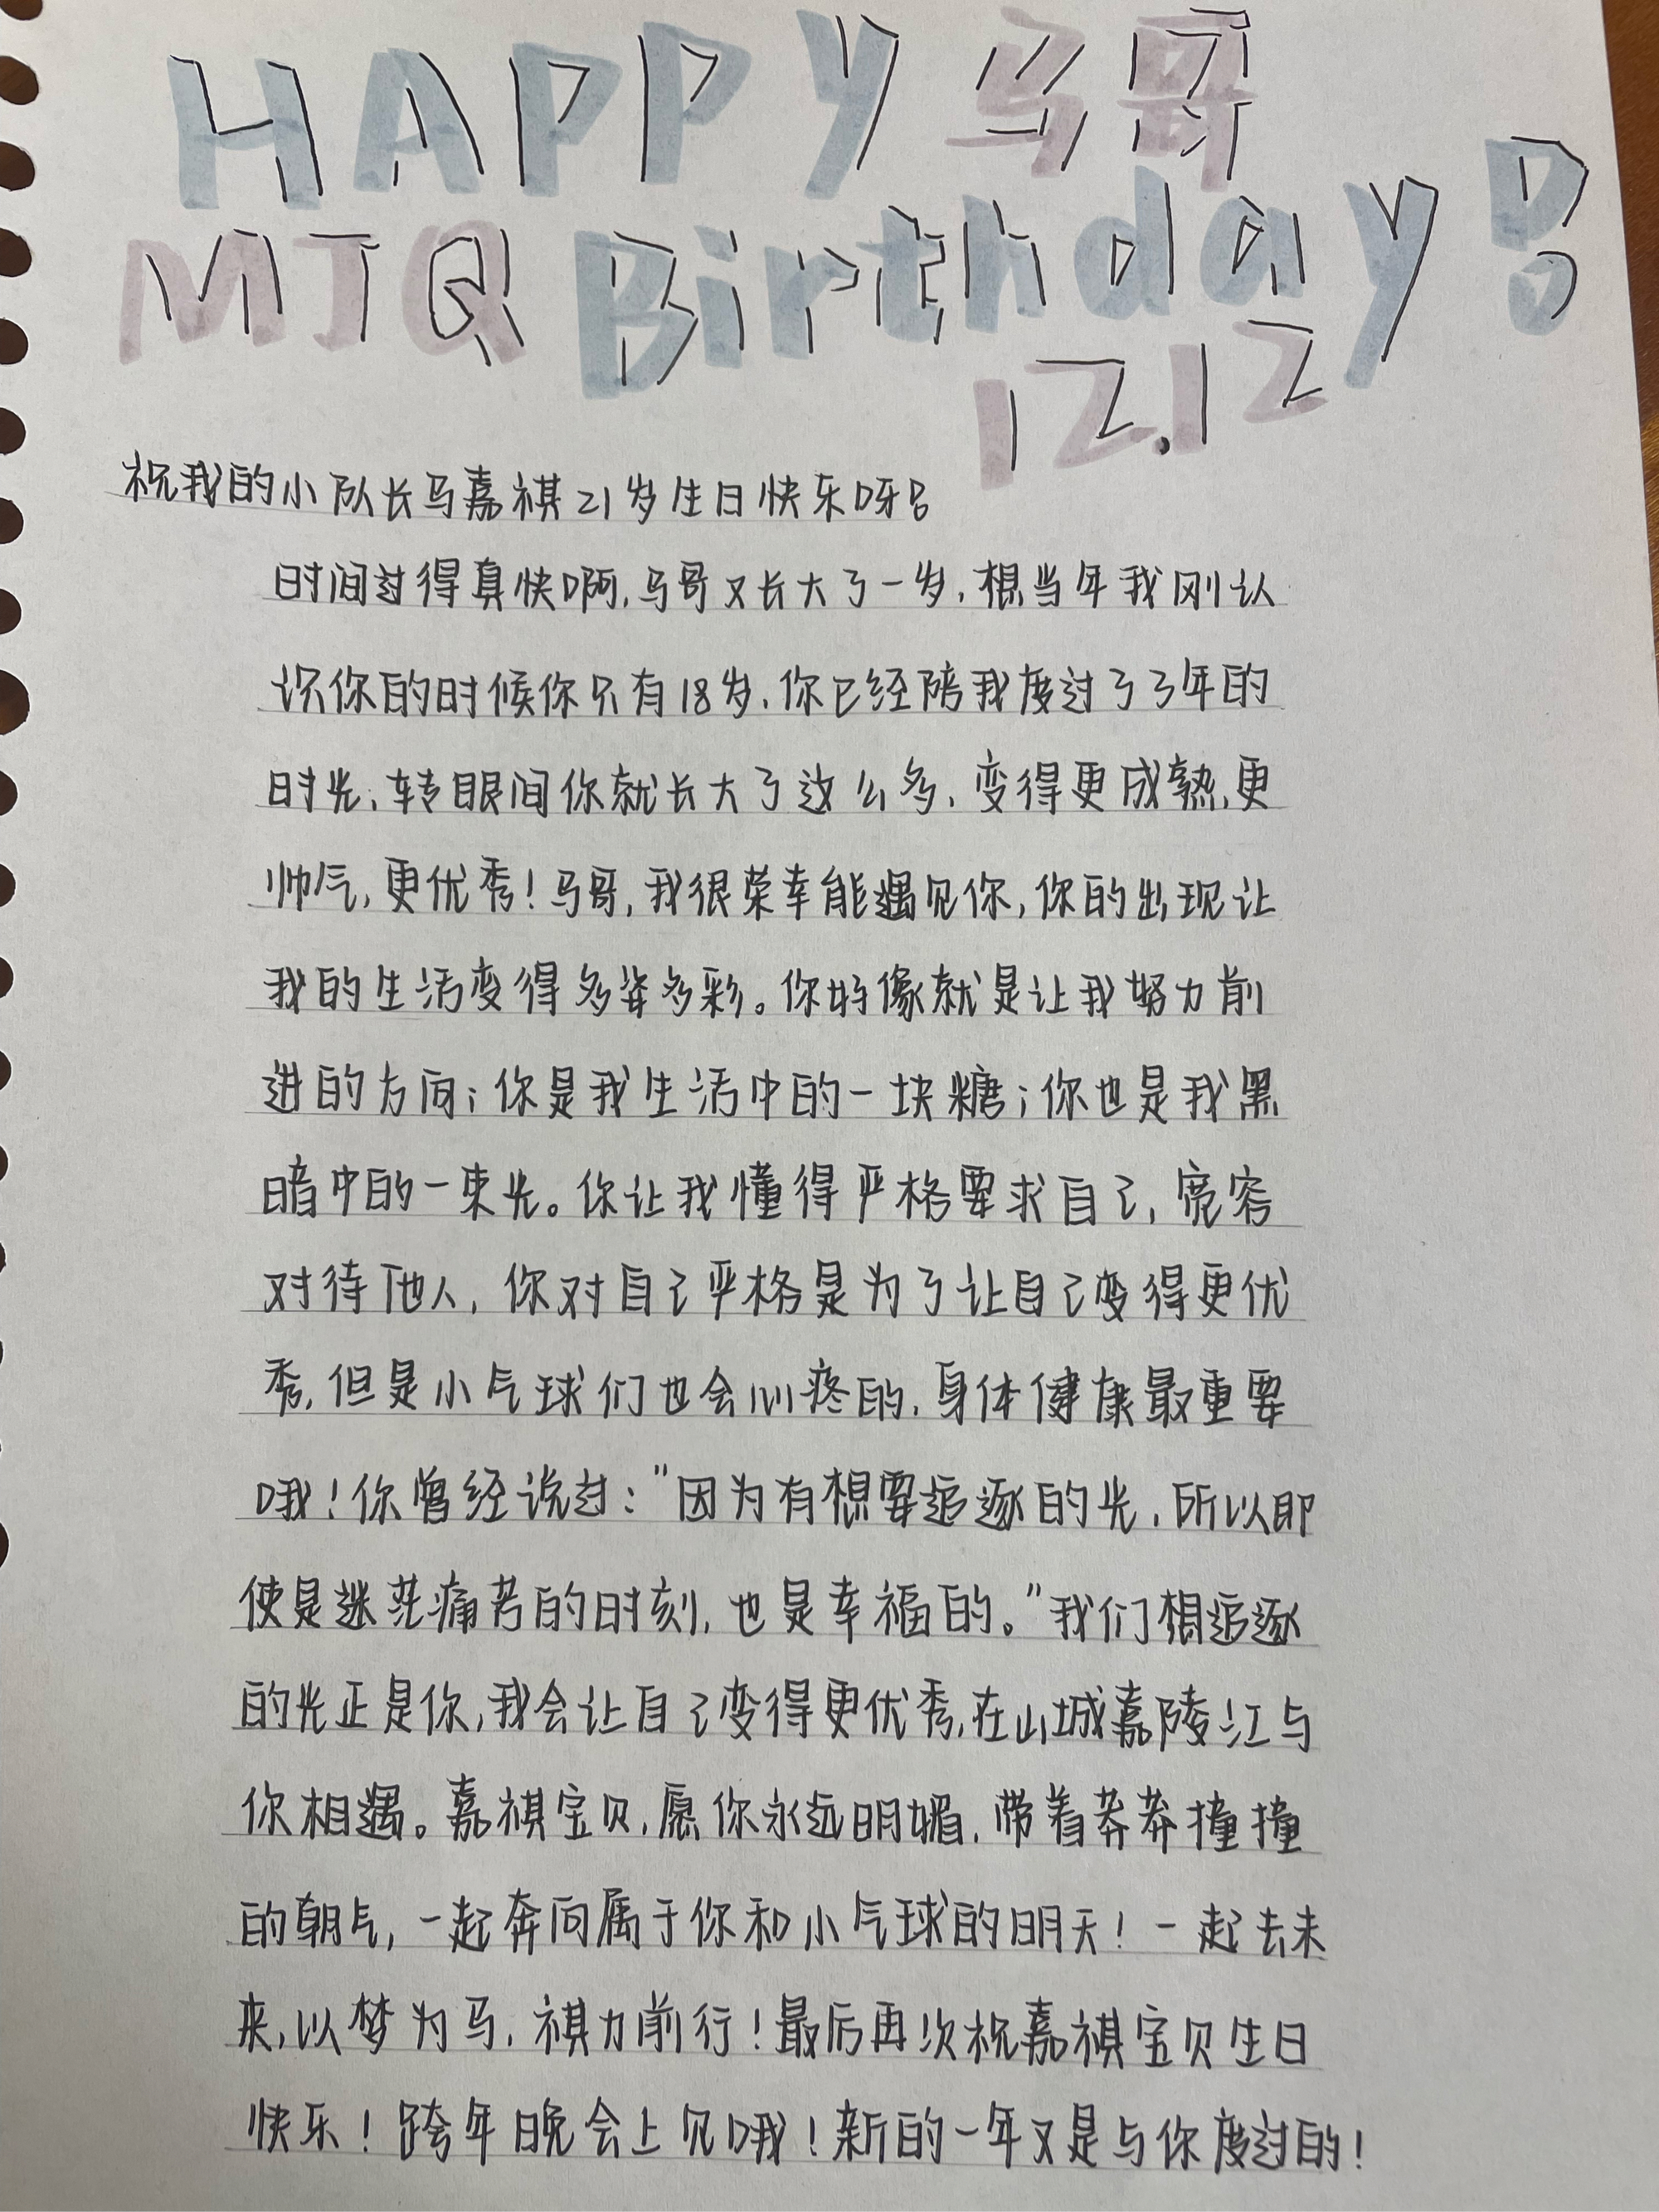 HAPPY 马哥
MJQ Birthday!
12.12
祝我的小队长马嘉祺21岁生日快乐呀!
时间过得真快啊,马哥又长大了一岁,想当年我刚认
识你的时候你只有18岁,你已经陪我度过了3年的
时光,转眼间你就长大了这么多,变得更成熟,更
帅气,更优秀!马哥,我很荣幸能遇见你,你的出现让
我的生活变得多姿多彩。你好像就是让我努力前
进的方向;你是我生活中的一块糖;你也是我黑
暗中的一束光。你让我懂得严格要求自己,宽容
对待他人,你对自己严格是为了让自己变得更优
秀,但是小气球们也会心疼的,身体健康最重要
哦!你曾经说过:"因为有想要追逐的光,所以即
使是迷茫痛苦的时刻,也是幸福的。"我们想追逐
的光正是你,我会让自己变得更优秀,在山城嘉陵江与
你相遇。嘉祺宝贝,愿你永远明媚,带着莽莽撞撞
的朝气,一起奔向属于你和小气球的明天!一起去未
来,以梦为马,祺力前行!最后再次祝嘉祺宝贝生日
快乐!跨年晚会上见哦!新的一年又是与你度过的!